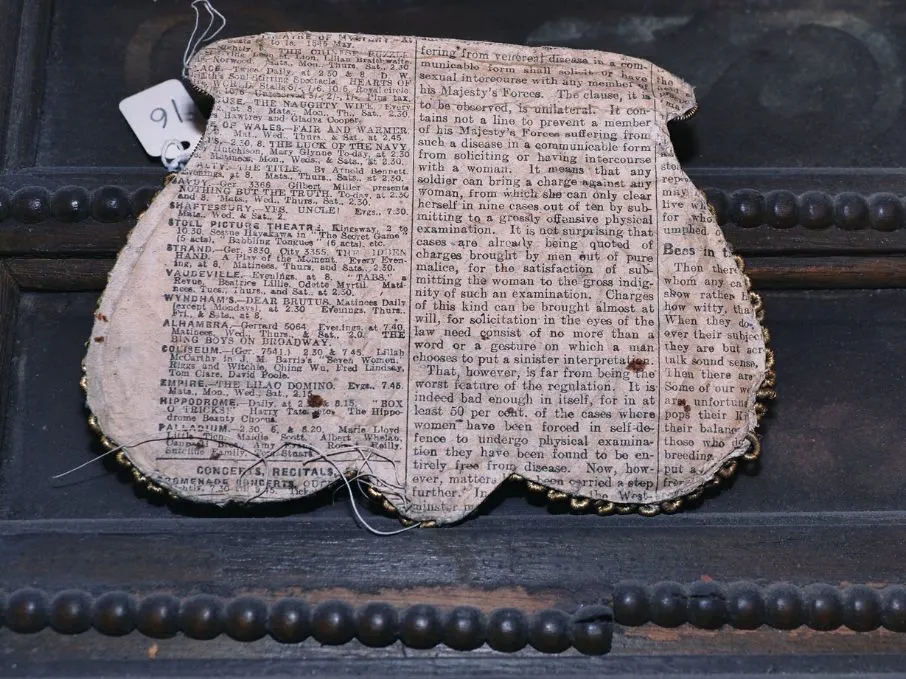 91
THEATRE OF MYSTERY
to 18. 1545 May.
THE CHINESE PUZZLE
Norwood, Lilian Braithwaite
Mats., Mon. Thurs. Sat., 2.30
Twice Daily, at 2.50 & 8. D. W.
Soul-Stirring Spectacle, HEARTS OF
Stalls Royal circle
Plus tax.
THE NAUGHTY WIFE. Every
at 8. Mats., Mon., Thu., Sat., 2.30
Hawtrey and Gladys Cooper.
OF WALES.—FAIR AND WARMER.
Mat., Wed., Thurs. & Sat., at 2.45.
2.30, 8. THE LUCK OF THE NAVY
Mary Glynne To-day, at 2.30
Matinees, Mon., Weds., & Sats., at 2.30.
THE TITLE. By Arnold Bennett
at 8. Mats., Thurs., Sats., 2.30.
Ger. 3366. Gilbert Miller presents
NOTHING BUT THE TRUTH. To-day at 2.30
and 8. Mats., Wed., Thurs., Sat., 2.30.
SHAFTESBURY.—YES, UNCLE! Evgs., 7.30.
Mats., Wed. & Sat., 2.
STOLL PICTURE THEATRE, Kingsway, 2 to
10.30. Sessue Hayakawa in "The Secret Game"
(5 acts), "Babbling Tongues" (6 acts), etc.
STRAND.—Ger. 3830. City 3355. THE HIDDEN
HAND. A Play of the Moment. Every Even-
ing, at 8. Matinees, Thurs. and Sats., 2.30.
VAUDEVILLE.—Evenings, at 8. "TABS" a
Revue. Beatrice Lillie, Odette Myrtil. Mati-
nees, Tues., Thurs., and Sat., at 2.30.
WYNDHAM'S.—DEAR BRUTUS. Matinees Daily
(except Mondays), at 2.30. Evenings, Thurs.,
Fri., & Sats., at 8.
ALHAMBRA.—Gerrard 5064. Evenings, at 7.40.
Matinees, Wed., Thurs., & Sat., 2.0. THE
BING BOYS ON BROADWAY.
COLISEUM.—(Ger. 7541.) 2.30 & 7.45. Lillah
McCarthy in J. M. Barrie's "Seven Women,"
Riggs and Witchie, Ching Wu, Fred Lindsay,
Tom Clare, David Poole.
EMPIRE.—THE LILAC DOMINO. Evgs., 7.45.
Mats., Mon., Wed., Sat., 2.15
HIPPODROME.—Daily, at 2.30 & 8.15. "BOX
O' TRICKS." Harry Tate, The Hippo-
drome Beauty Chorus.
PALLADIUM.—2.30, 6, & 8.20. Marie Lloyd
Little Tich, Maidie Scott, Albert Whelan,
Reilly,
Sutcliffe Family, Tom Stuart
CONCERTS, RECITALS,
PROMENADE CONCERTS,
fering from venereal disease in a com-
municable form shall solicit or have
sexual intercourse with any member of
his Majesty's Forces. The clause, it is
to be observed, is unilateral. It con-
tains not a line to prevent a member
of his Majesty's Forces suffering from
such a disease in a communicable form
from soliciting or having intercourse
with a woman. It means that any
soldier can bring a charge against any
woman, from which she can only clear
herself in nine cases out of ten by sub-
mitting to a grossly offensive physical
examination. It is not surprising that
cases are already being quoted of
charges brought by men out of pure
malice, for the satisfaction of sub-
mitting the woman to the gross indig-
nity of such an examination. Charges
of this kind can be brought almost at
will, for solicitation in the eyes of the
law need consist of no more than a
word or a gesture on which a man
chooses to put a sinister interpretation.
That, however, is far from being the
worst feature of the regulation. It is
indeed bad enough in itself, for in at
least 50 per cent. of the cases where
women have been forced in self-de-
fence to undergo physical examina-
tion they have been found to be en-
tirely free from disease. Now, how-
ever, matters been carried a step
further. In the West-
minster
the
stol
repe
may
live w
for wh
umphed
Bees in
Then ther
whom any ca
show rather h
how witty, tha
When they do
ever their subject
they are but scr
talk sound sense,
Then there are
Some of our we
are unfortun
pops their K
their balance
those who do
breeding.
put a
fre